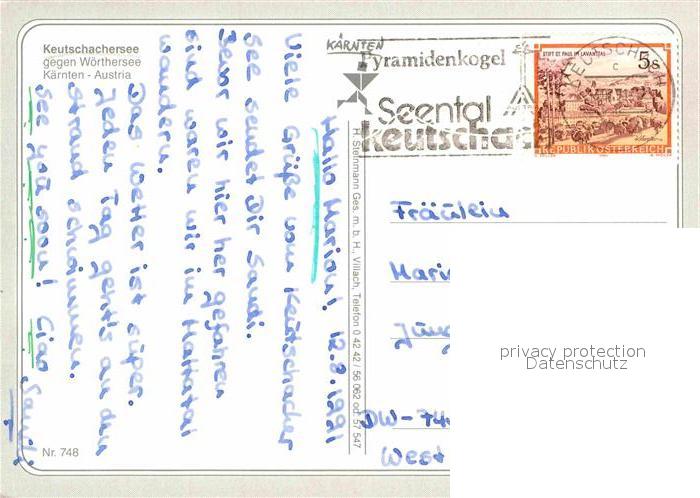 Keutschachersee
gegen Wörthersee
Kärnten - Austria
KÄRNTEN
Pyramidenkogel
Seental
keutscha
STIFT ST. PAUL IM LAVANTTAL
5s
REPUBLIK ÖSTERREICH
Hallo Marion! 12.8.1991
Viele Grüße vom Keutschacher
See sendet Dir Sandi.
Bevor wir hier her gefahren
sind waren wir im Maltatal
wandern.
Das Wetter ist super.
Jeden Tag geht's an den
Strand schwimmen.
See you soon! Ciao Sandi
H. Steinmann Ges. m. b. H., Villach, Telefon 0 42 42 / 56 062 od. 57 547
Fräulein
Mari
Jung
DW-74
West
privacy protection
Datenschutz
Nr. 748